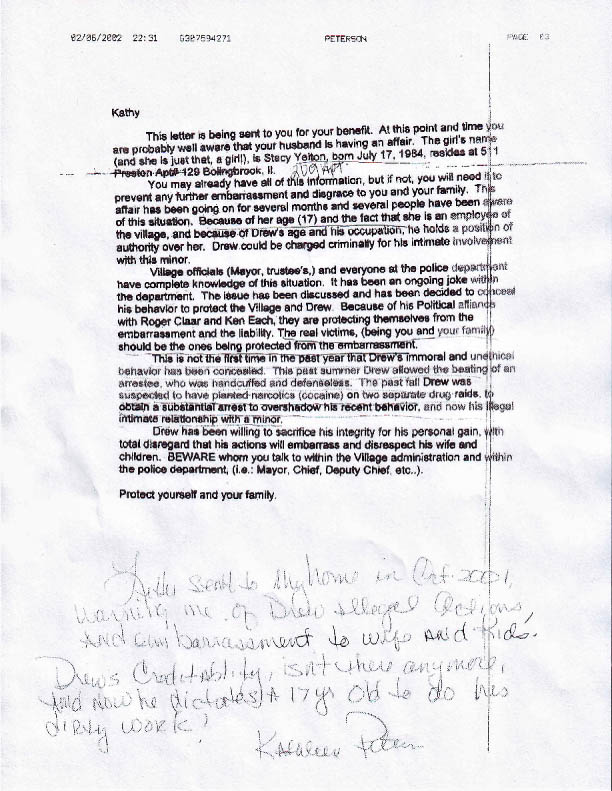 02/06/2002 22:31 6307594271 PETERSON PAGE 03
Kathy
This letter is being sent to you for your benefit. At this point and time you
are probably well aware that your husband is having an affair. The girl's name
(and she is just that, a girl!), is Stacy Yelton, born July 17, 1984, resides at 511
Preston Apt# 129 Bolingbrook, Il.
You may already have all of this information, but if not, you will need it to
prevent any further embarrassment and disgrace to you and your family. This
affair has been going on for several months and several people have been aware
of this situation. Because of her age (17) and the fact that she is an employee of
the village, and because of Drew's age and his occupation, he holds a position of
authority over her. Drew could be charged criminally for his intimate involvement
with this minor.
Village officials (Mayor, trustee's,) and everyone at the police department
have complete knowledge of this situation. It has been an ongoing joke within
the department. The issue has been discussed and has been decided to conceal
his behavior to protect the Village and Drew. Because of his Political alliance
with Roger Claar and Ken Each, they are protecting themselves from the
embarrassment and the liability. The real victims, (being you and your family)
should be the ones being protected from the embarrassment.
This is not the first time in the past year that Drew's immoral and unethical
behavior has been concealed. This past summer Drew allowed the beating of an
arrestee, who was handcuffed and defenseless. The past fall Drew was
suspected to have planted narcotics (cocaine) on two separate drug raids, to
obtain a substantial arrest to overshadow his recent behavior, and now his illegal
intimate relationship with a minor.
Drew has been willing to sacrifice his integrity for his personal gain, with
total disregard that his actions will embarrass and disrespect his wife and
children. BEWARE whom you talk to within the Village administration and within
the police department, (i.e.: Mayor, Chief, Deputy Chief, etc..).
Protect yourself and your family.
Letter sent to my home in Oct. 2001,
warning me of Drew illegal Actions,
And embarrassment to wife and kids.
Drews Creditability, isn't there anymore,
And Now he dictates A 17 yr old to do his
dirty work!
Kathleen Peterson